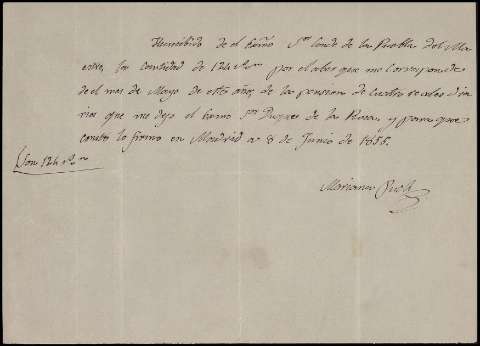 He recibido de el Exmo Sor Conde de la Puebla del Ma
estre, la cantidad de 124 rs vn por el aber que me corresponde
de el mes de Mayo de este año, de la pension de cuatro reales dia
rios que me dejo el Exmo Sor Duque de la Roca, y para que
conste lo firmo en Madrid a 8 de Junio de 1855.
Son 124 rs vn
Mariano